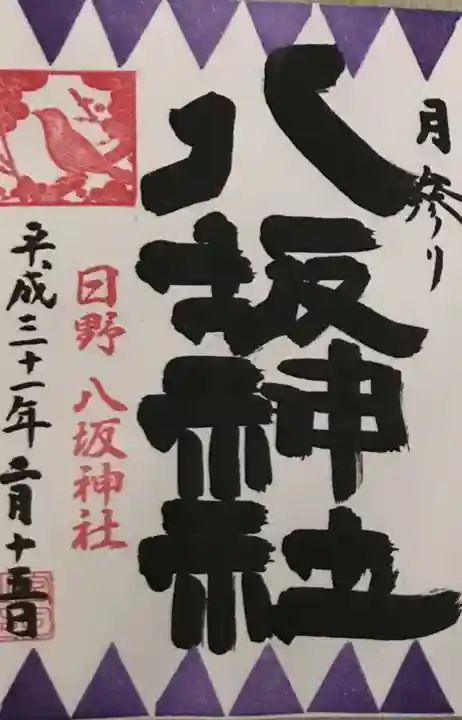 月参り
八坂神社
日野 八坂神社
平成三十一年二月十五日